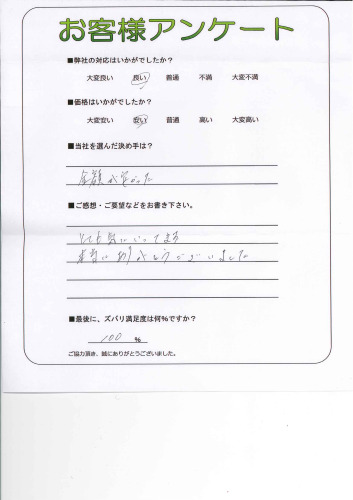 お客様アンケート
■弊社の対応はいかがでしたか?
大変良い 良い 普通 不満 大変不満
■価格はいかがでしたか?
大変安い 安い 普通 高い 大変高い
■当社を選んだ決め手は?
金額が安かった
■ご感想・ご要望などをお書き下さい。
とても気にいってます
本当にありがとうございました
■最後に、ズバリ満足度は何%ですか?
100 %
ご協力頂き、誠にありがとうございました。